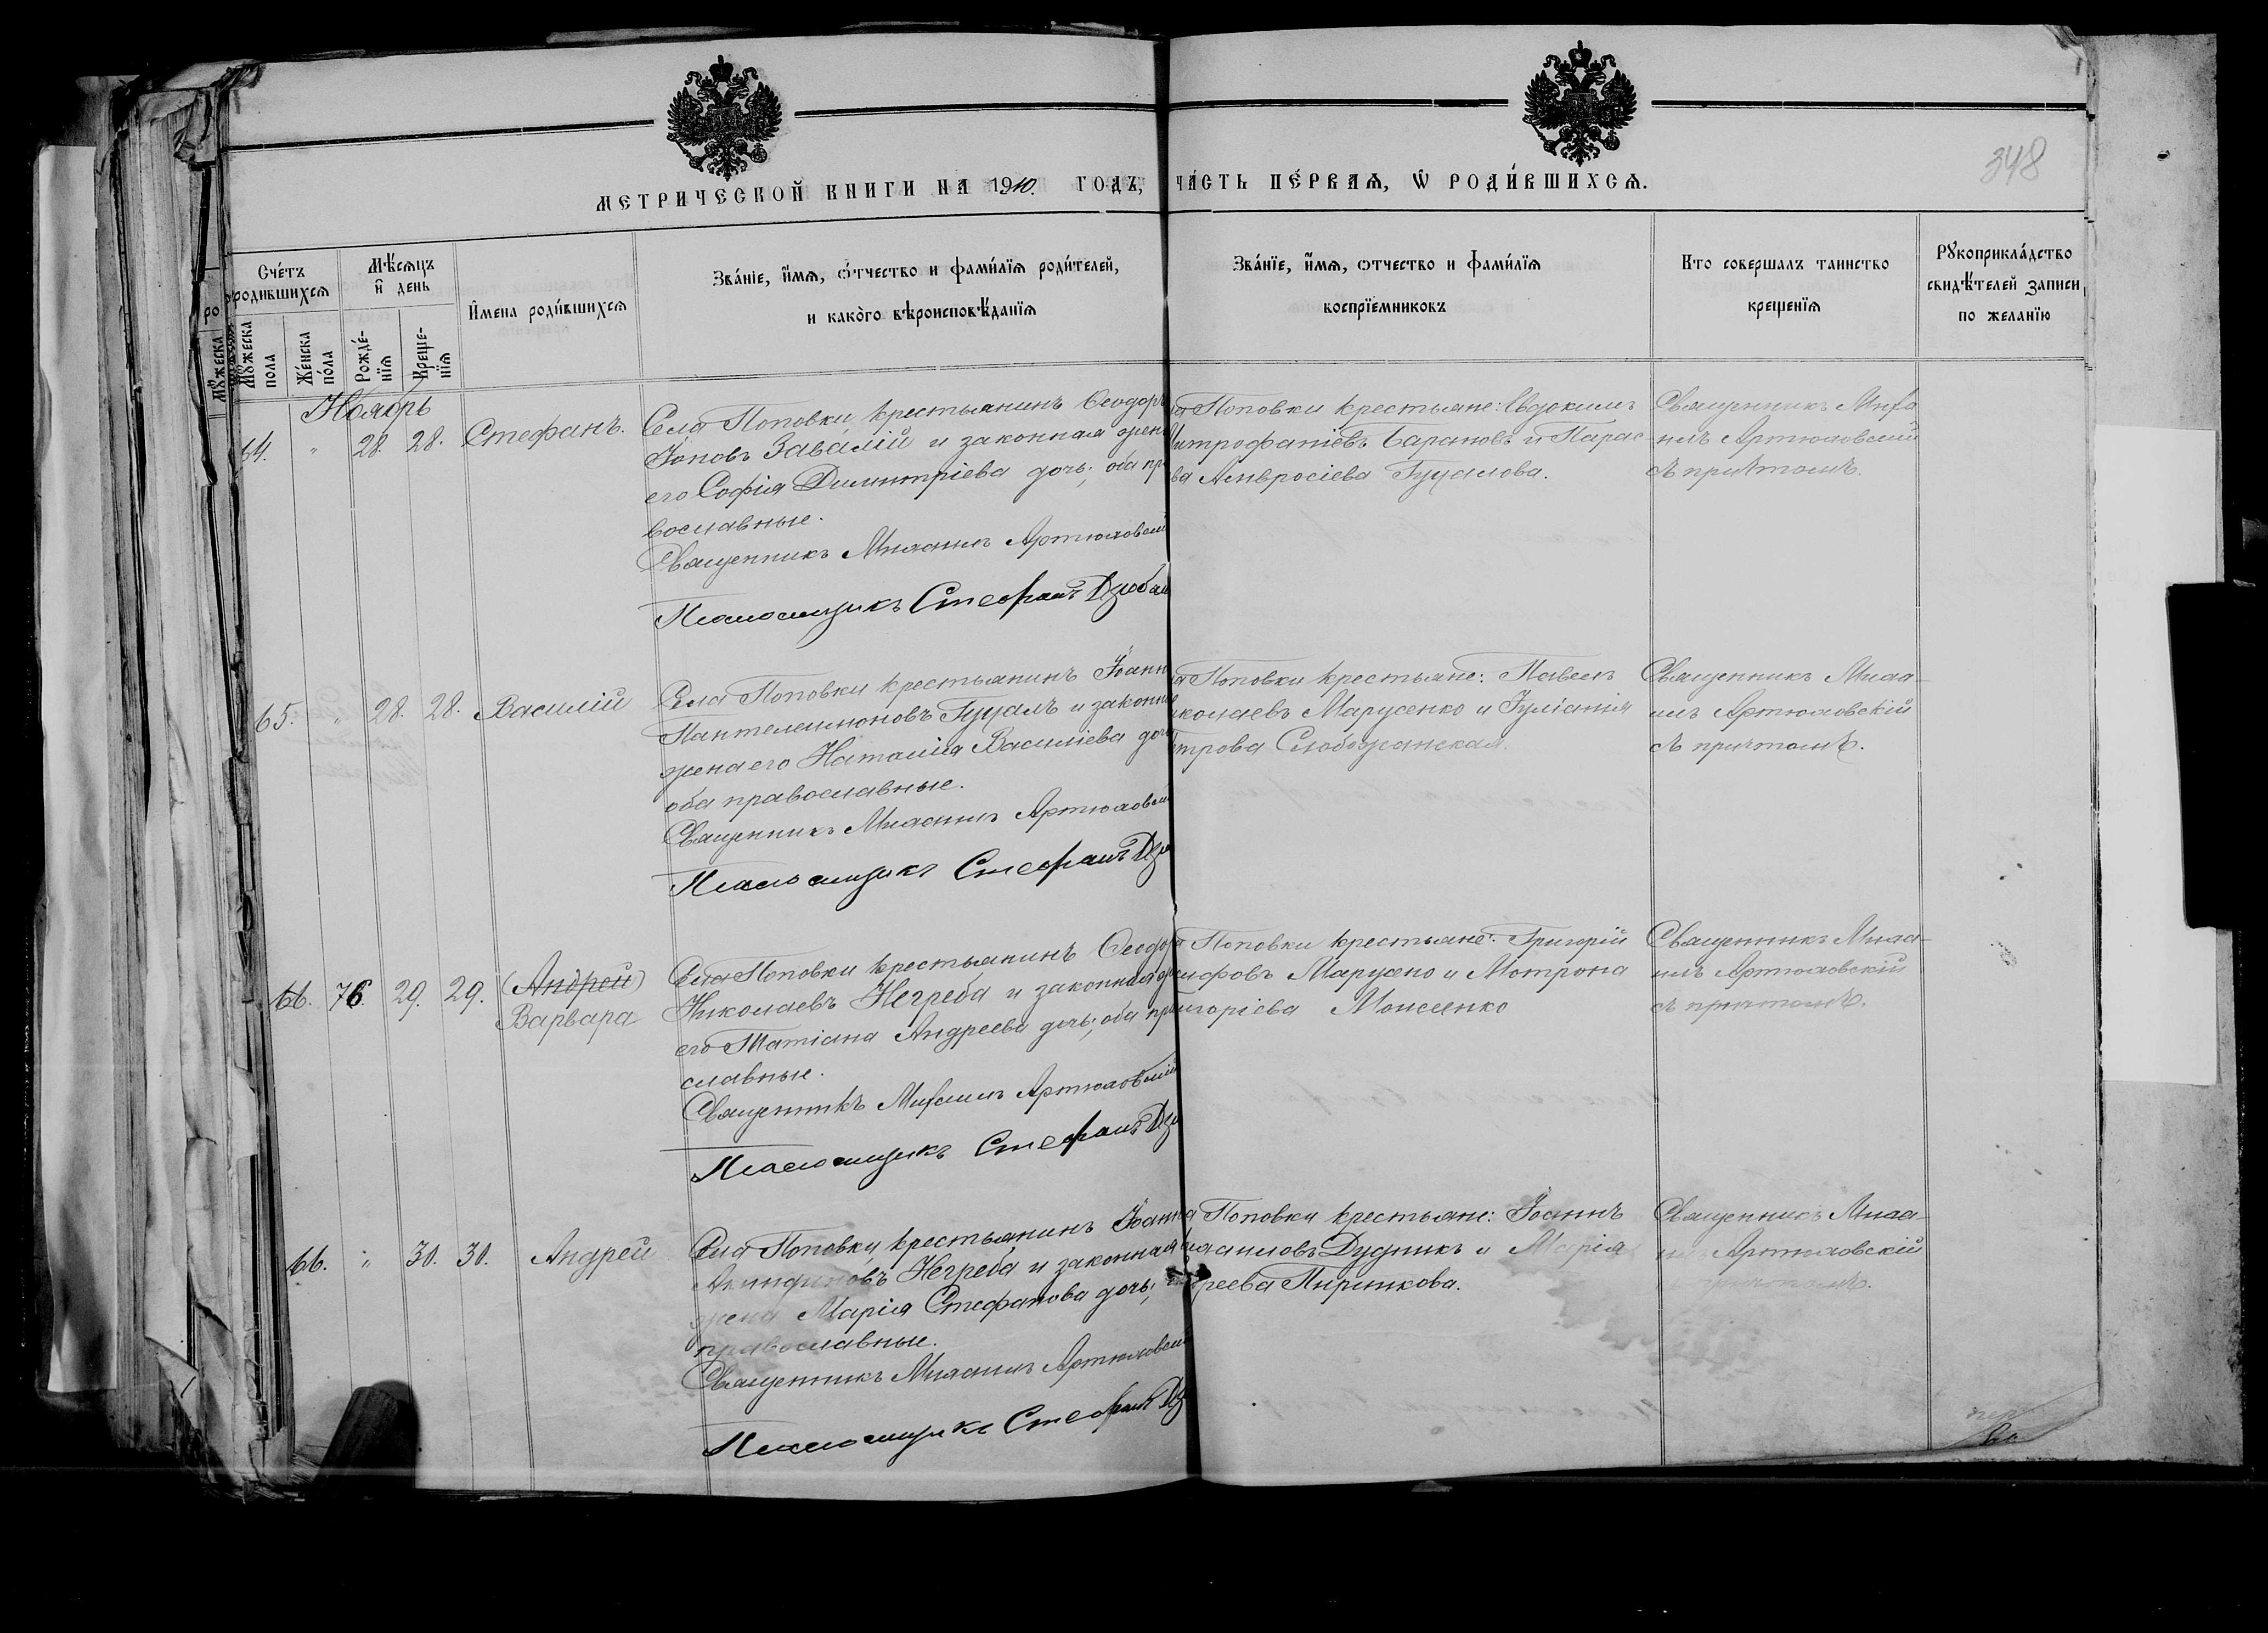 348
МЕТРИЧЕСКОЙ КНИГИ НА 1910. ГОДЪ, ЧА́СТЬ ПЕ́РВАѦ, Ѡ҆ РОДИ́ВШИХСѦ.
Сче́тъ родившихсѧ
Мѣ́сѧцъ и҆ день
И҆мена роди́вшихсѧ
Зва́ніе, и҆́мѧ, о́тчество и фами́лїѧ роди́телей,
и како́го вѣроисповѣ́данїѧ
Зва́нїе, и҆́мѧ, отчество и фами́лїѧ
воспрїемниковъ
Кто совершалъ таинство
крещенїѧ
Рꙋкоприкла́дство
свидѣ́телей записи
по желанїю
Мꙋжеска пола
Же́нска по́ла
Рожде́-нїѧ
Креще-нїѧ
Ноябрь
64. " 28. 28. Стефанъ.
Села Поповки, крестьянинъ Ѳеодоръ
Іоновъ Завалій и законная жен
его Софія Димитріева дочь; оба пр
вославные.
Священникъ Михаилъ Артюховскій
Псаломщикъ Стефанъ Дзюбан
Поповки крестьяне: Евдокимъ
Митрофаніевъ Барановъ и Парас-
ва Амвросіева Гуцалова.
Священникъ Миха
илъ Артюховскій
съ причтомъ.
65. " 28. 28. Василій
Села Поповки крестьянинъ Іоанн
Пантелеимоновъ Гуцалъ и законн
жена его Наталія Василіева доч
оба православные.
Священникъ Михаилъ Артюховск
Псаломщикъ Стефанъ Дзю
Поповки крестьяне: Павелъ
иколаевъ Марусенко и Іуліанія
трова Слобожанская.
Священникъ Миха-
илъ Артюховскій
съ причтомъ.
66. 76. 29. 29. (Андрей)
Варвара
Села Поповки крестьянинъ Ѳеодор
Николаевъ Негреба и законная ж
его Татіана Андреева дочь; оба пр
славные.
Священникъ Михаилъ Артюховскій
Псаломщикъ Стефанъ Дзю
Поповки крестьяне: Григорій
сифовъ Марусено и Мотрона
игоріева Моисеенко
Священникъ Миха-
илъ Артюховскій
съ причтомъ.
66. " 30. 30. Андрей
Села Поповки крестьянинъ Іоанн
Акиндиновъ Негреба и законная
жена Марія Стефанова дочь;
православные.
Священникъ Михаилъ Артюховск
Псаломщикъ Стефанъ Дз
Поповки крестьяне: Іоаннъ
хаиловъ Дудникъ и Марія
реева Пиринкова.
Священникъ Миха-
илъ Артюховскій
съ причтомъ.